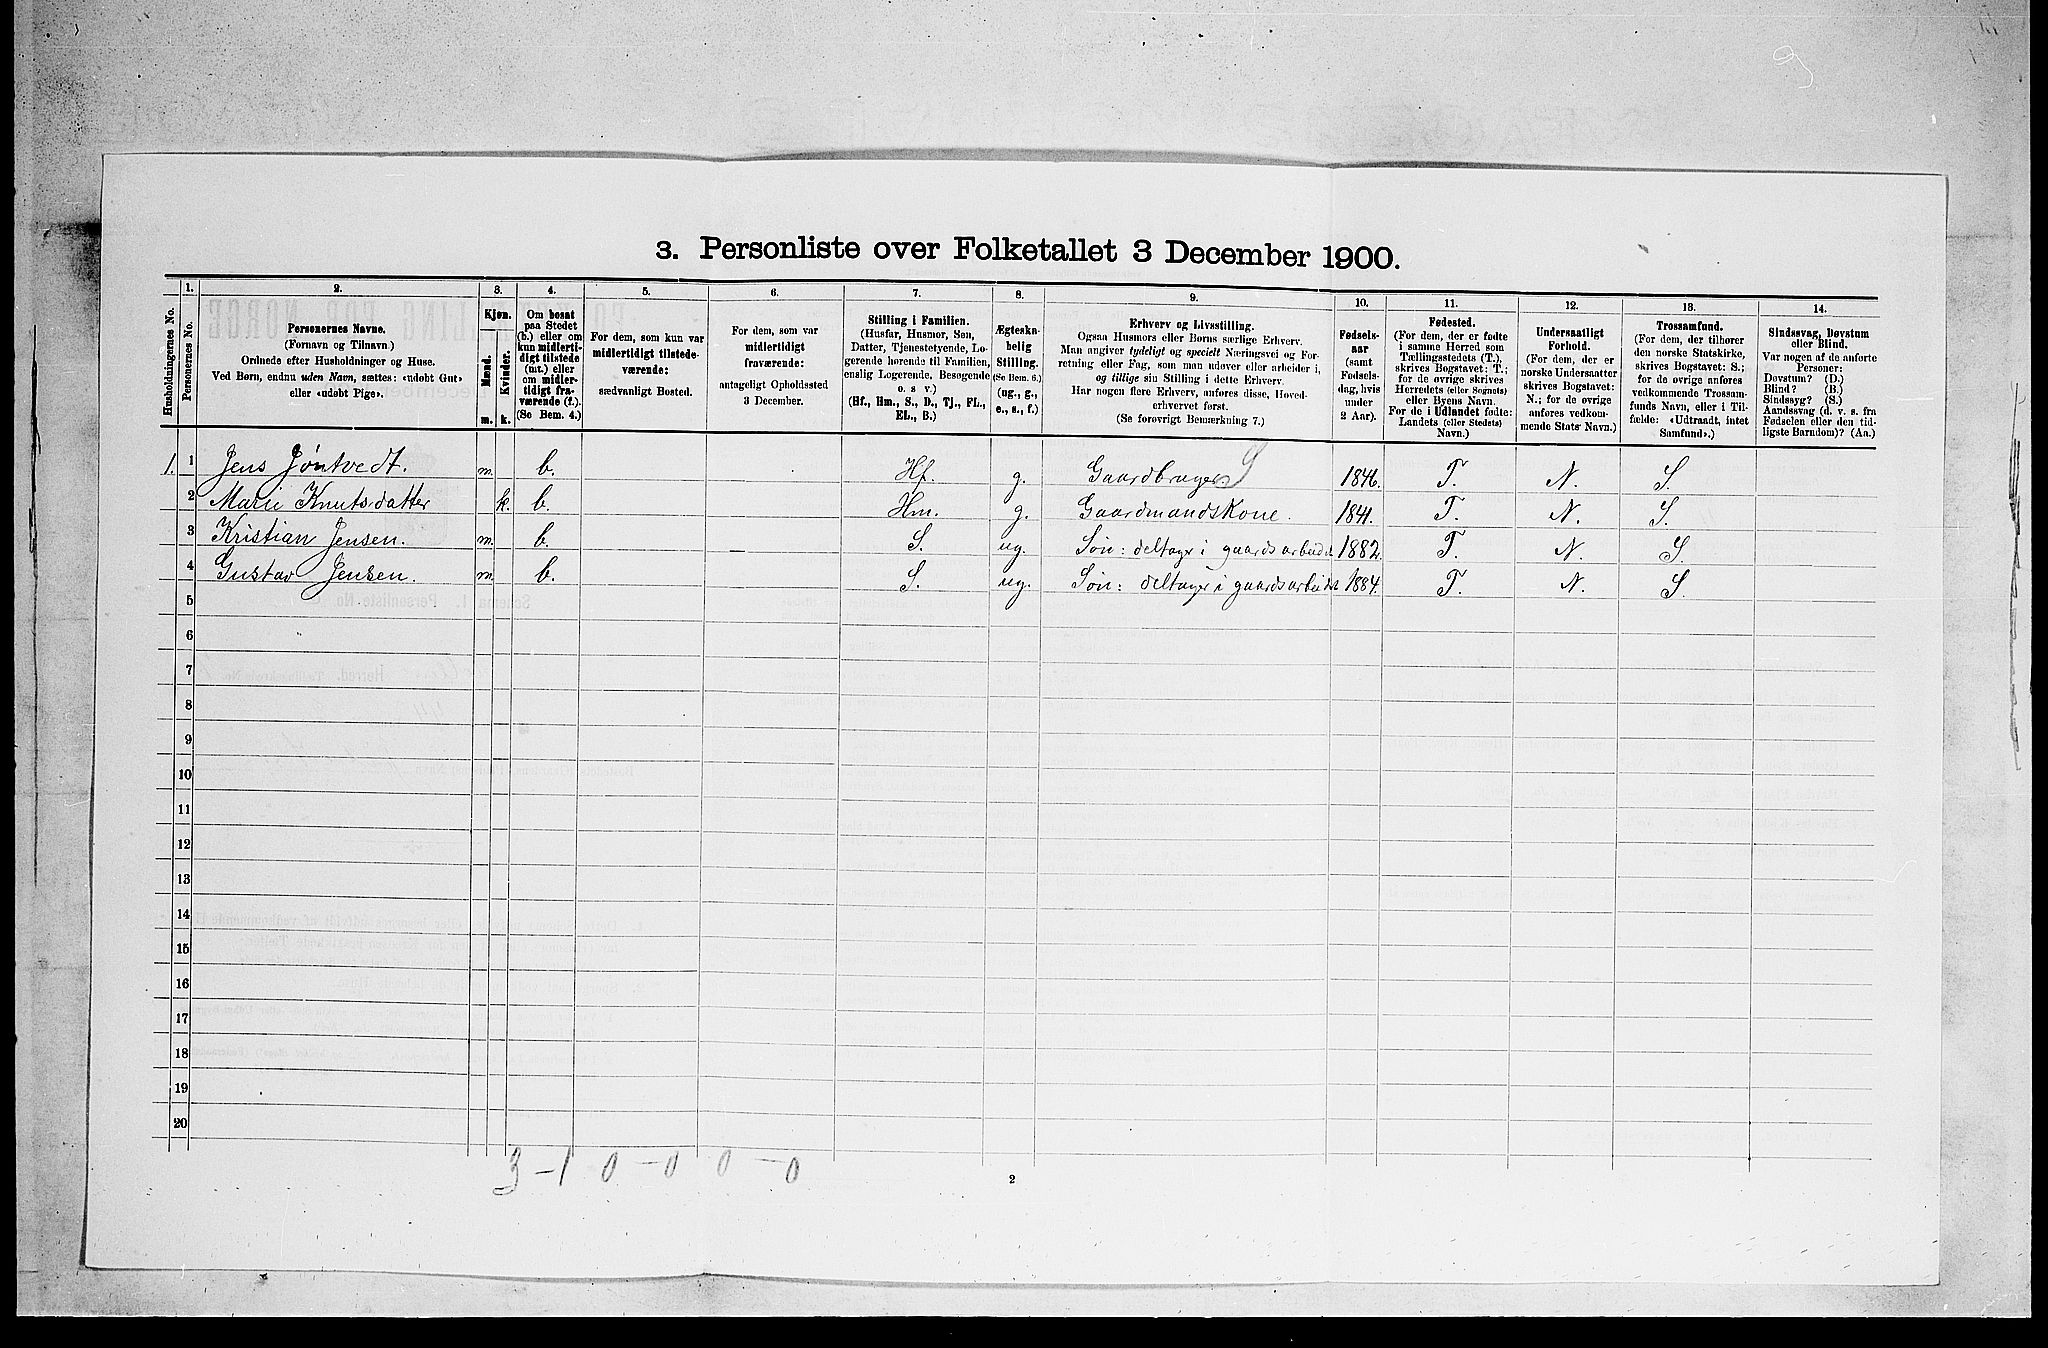 3. Personliste over Folketallet 3 December 1900.
1. 2. 3. 4. 5. 6. 7. 8. 9. 10. 11. 12. 13. 14.
Husholdningernes No.
Personernes No.
Personernes Navne.
(Fornavn og Tilnavn.)
Ordnede efter Husholdninger og Huse.
Ved Børn, endnu uden Navn, sættes: «udøbt Gut»
eller «udøbt Pige».
Kjøn.
Mænd.
Kvinder.
m. k.
Om bosat
paa Stedet
(b.) eller om
kun midlerti-
digt tilstede
(mt.) eller
om midler-
tidigt fra-
værende (f.).
(So Bem. 4.)
For dem, som kun var
midlertidigt tilstede-
værende:
sædvanligt Bosted.
For dem, som var
midlertidigt
fraværende:
antageligt Opholdssted
3 December.
Stilling i Familien.
(Husfar, Husmor, Søn,
Datter, Tjenestetyende, Lo-
gerende hørende til Familien,
enslig Logerende, Besøgende
o. s v.)
(Hf., Hm., S., D., Tj., FL.,
EL., B.)
Ægteska-
belig
Stilling.
(So Bem. 6.)
(ug., g.,
e., s., f.)
Erhverv og Livsstilling.
Ogsaa Husmors eller Børns særlige Erhverv.
Man angiver tydeligt og specielt Næringsvei og For-
retning eller Fag, som man udøver eller arbeider i,
og tillige sin Stilling i dette Erhverv.
Har nogen flere Erhverv, anføres disse, Hoved-
erhvervet først.
(Se forøvrigt Bemærkning 7.)
Fødsels-
aar
(samt
Fødsels-
dag, hvis
under
2 Aar).
Fødested.
(For dem, der er fødte
i samme Herred som
Tællingsstedets (T.),
skrives Bogstavet: T.;
for de øvrige skrives
Herredets (eller Sognets)
eller Byens Navn.
For de i Udlandet fødte:
Landets (eller Stedets)
Navn.)
Undersaatligt
Forhold.
(For dem, der er
norske Undersaatter
skrives Bogstavet:
N.; for de øvrige
anføres vedkom-
mende Stats Navn.)
Trossamfund.
(For dem, der tilhører
den norske Statskirke,
skrives Bogstavet: S.;
for de øvrige anføres
vedkommende Trossam-
funds Navn, eller i Til-
fælde: «Udtraadt, intet
Samfund».)
Sindssvag, Døvstum
eller Blind.
Var nogen af de anførte
Personer:
Døvstum? (D.)
Blind? (B.)
Sindssyg? (S.)
Aandssvag (d. v. s. fra
Fødselen eller den tid-
ligste Barndom)? (Aa.)
1. 1 Jens Jøntvedt. m. b. Hf. g. Gaardbruger S 1846. T. N. S.
2 Marie Knutsdatter k. b. Hm. g. Gaardmandskone. 1841. T. N. S.
3 Kristian Jensen. m. b. S. ug. Søn: deltager i gaardsarbeidet 1882. T. N. S.
4 Gustav Jensen. m. b. S. ug. Søn: deltager i gaardsarbeidet 1884. T. N. S.
5
6
7
8
9
10
11
12
13
14
15
16
17
18
19
20
3 – 1 0 – 0 0 – 0
2